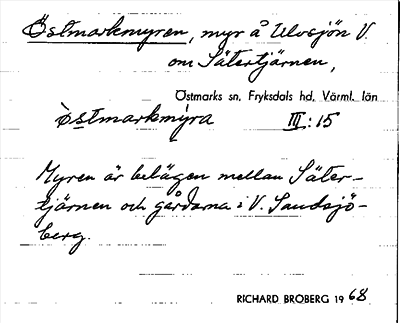 Östmarkmyren, myr å Ulvsjön V.
om Sätertjärnen,
Östmarks sn, Fryksdals hd, Värml. län
östmarkmýra III:15
Myren är belägen mellan Säter-
tjärnen och gårdarna i V. Sandsjö-
berg.
RICHARD BROBERG 1968